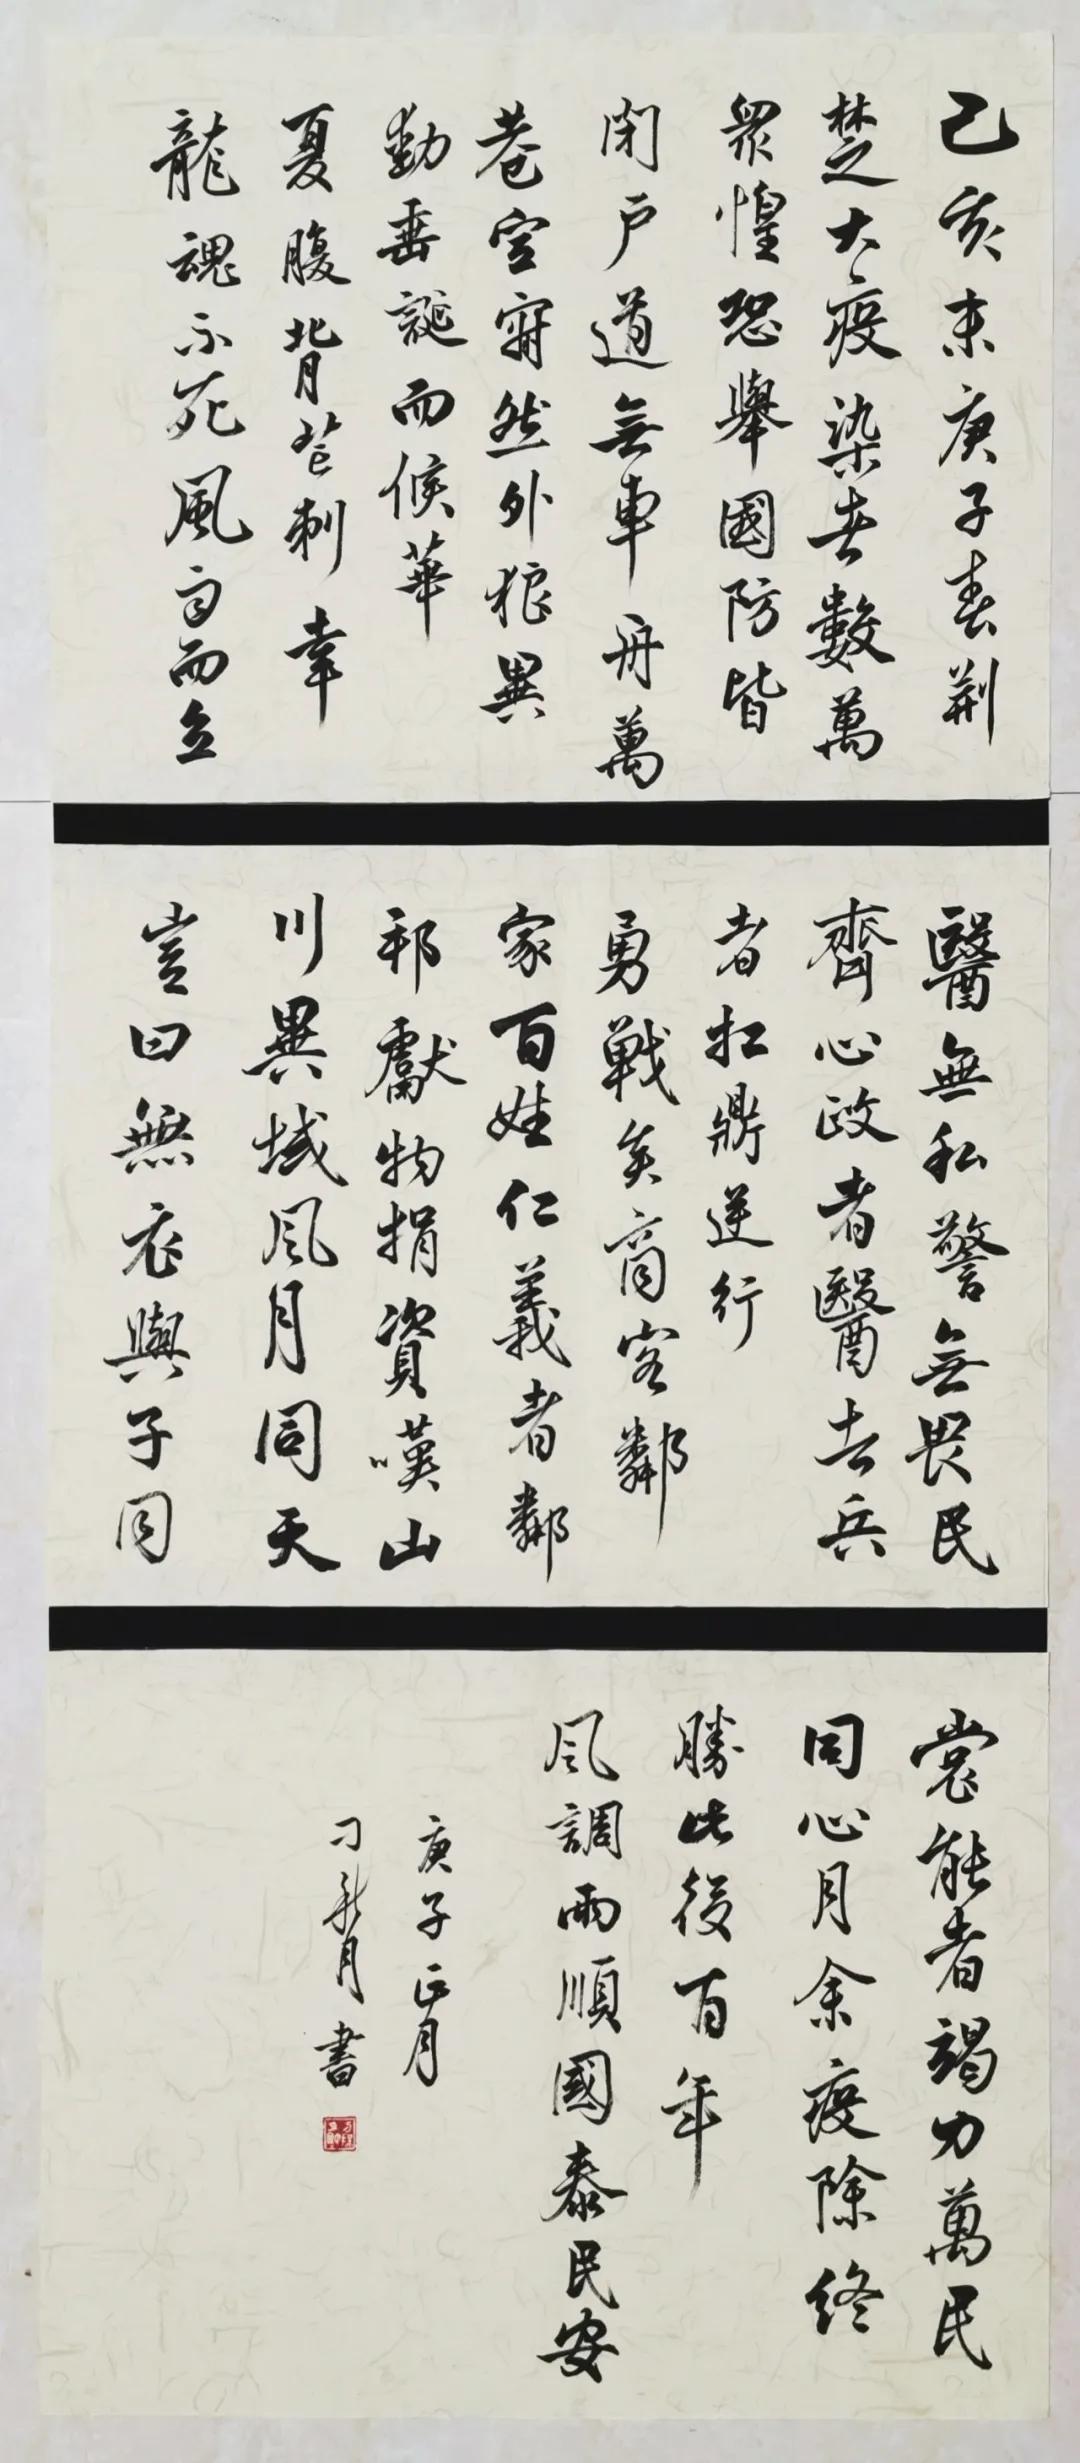 己亥末庚子春荆
楚大疫染者數萬
衆惶恐舉國防皆
閉户道無車舟萬
巷空寂然外狼異
動垂誕而候華
夏腹背芒刺幸
龍魂不死風雨而立
醫無私警無畏民
齊心政者醫者兵
者扛鼎逆行
勇戰矣商客鄰
家百姓仁義者鄰
邦獻物捐資嘆山
川異域風月同天
豈曰無衣與子同
裳能者竭力萬民
同心月余疫除終
勝此後百年
風調雨順國泰民安
庚子正月
刁月書